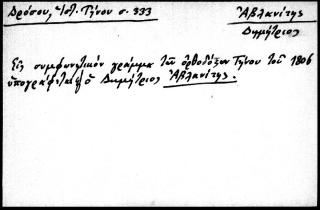 Δρόσου, Ἱστ. Τήνου σ. 333
Ἀβλανίτης
Δημήτριος
Εἰς συμφωνητικὸν γράμμα τῶν ὀρθοδόξων Τήνου τοῦ 1806
ὑπογράφεται ὁ Δημήτριος Ἀβλανίτης.